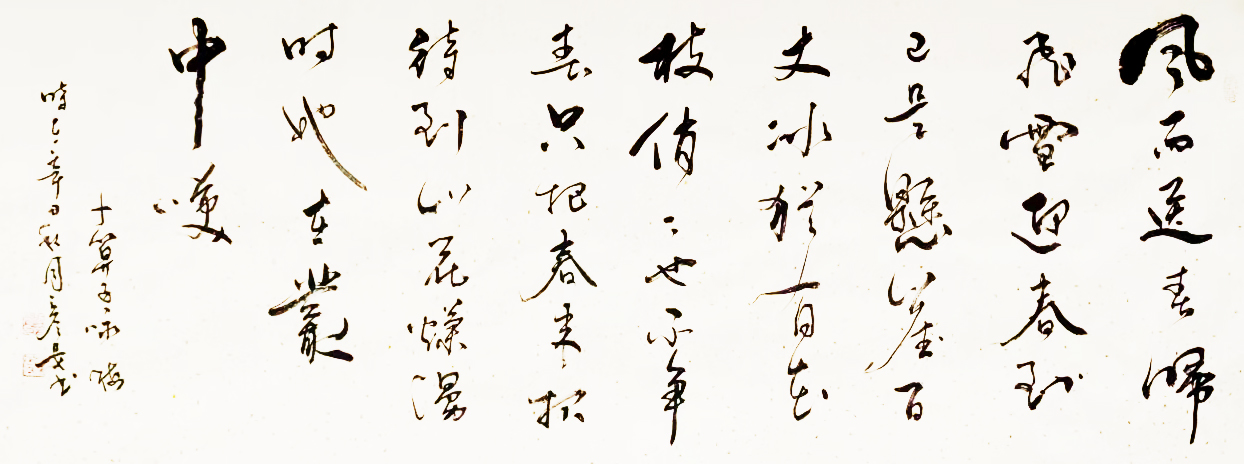 風雨送春歸
飛雪迎春到
已是懸崖百
丈冰猶有花
枝俏〻也不爭
春只把春来報
待到山花爛漫
時她在叢
中咲
卜算子咏梅
時 秋月 书